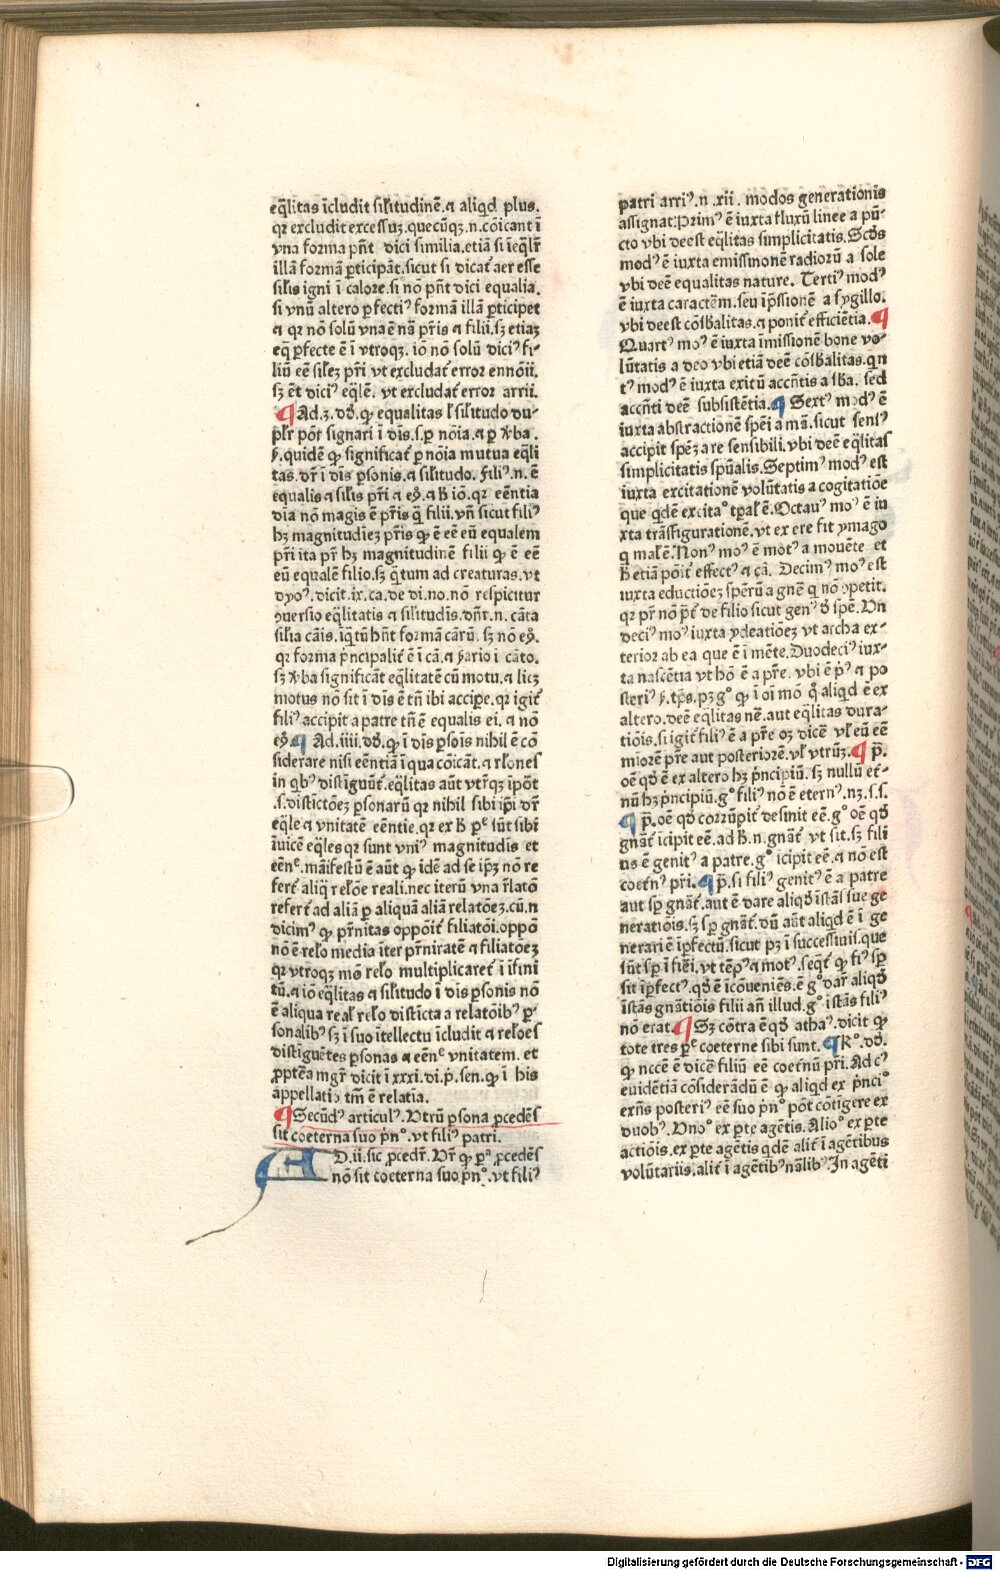 eq̄litas īcludit sil̄itudinē.⁊ aliq̇d plus.
qꝛ excludit excessuꝫ.quecūqꝫ.n.cōicant ī
vna forma pn̄t dici similia.etiā si ieq̄lr̄
illā formā ꝑticipāt.sicut si dicat̄ aer esse
sil̄is igni ī calore.si nō pn̄t dici equalia.
si vnū altero ꝑfectiꝰ formā illā ꝑticipet
⁊ qꝛ nō solū vna ē nā pr̄is ⁊ filii.sꝫ etiaꝫ
eq̄ ꝑfecte ē ī vtroqꝫ. iō nō solū diciꝰ fi-
liū eē sil̄eꝫ pr̄i vt excludat̄ error ennōii.
sꝫ ēt diciꝰ eq̄lē. vt excludat̄ error arrii.
¶ Ad.3.dō. ꝙ equalitas l̄ sil̄itudo du-
pl̄r pōt signari ī dīs.s.ꝑ nōīa.⁊ ꝑ v̄ba.
⁊.quidē ꝙ significat̄ ꝑ nōīa mutua eq̄li
tas.dr̄ ī dīs ꝑsonis.⁊ sil̄itudo. filiꝰ.n.ē
equalis ⁊ sil̄is pr̄i ⁊ eꝯ.⁊ h̄ iō.qꝛ eēntia
dīa nō magis ē pr̄is q̄ filii.vn̄ sicut filiꝰ
hꝫ magnitudīeꝫ pr̄is ꝙ ē eē eū equalem
pr̄i ita pr̄ hꝫ magnitudinē filii ꝙ ē eē
eū equalē filio.sꝫ q̄tum ad creaturas.vt
dyoꝰ.dicit.ix.ca.de di.no.nō respicitur
ꝯuersio eq̄litatis ⁊ sil̄itudīs.dn̄r.n. cāta
sil̄ia cāis.iq̄tū hn̄t formā cārū. sꝫ nō eꝯ.
qꝛ forma p̄ncipalit̄ ē ī cā.⁊ ẜario ī cāto.
sꝫ v̄ba significāt eq̄litatē cū motu.⁊ licꝫ
motus nō sit ī dīs ē tn̄ ibi accipe.qꝛ igit̄
filiꝰ accipit a patre tn̄ ē equalis ei. ⁊ nō
eꝯ ¶ Ad.iiii.dō. ꝙ ī dīs ꝑsōis nihil ē cō
siderare nisi eēntiā ī qua cōicāt.⁊ rl̄ones
in qbꝰ distiguūt̄.eq̄litas aūt vtrqꝫ īpōt
.s.distictōeꝫ ꝑsonarū qꝛ nihil sibi ip̄i dr̄
eq̄le ⁊ vnitatē eēntie.qꝛ ex h̄ pᵉ sūt sibi
īuicē eq̄les qꝛ sunt vniꝰ magnitudīs et
eēnᵉ.maīfestū ē aūt ꝙ idē ad se ip̄ꝫ nō re
fert̄ aliq̄ relōe reali.nec iterū vna r̄latō
refert̄ ad aliā ꝑ aliquā aliā relatōeꝫ.cū.n
dicimꝰ ꝙ pr̄nitas oppōit̄ filiatōi.oppō
nō ē relo̅ media īter pr̄niratē ⁊ filiatōeꝫ
qꝛ vtroqꝫ mō relo̅ multiplicaret̄ ī īfini
tū.⁊ iō eq̄litas ⁊ sil̄itudo ī dīs ꝑsonis nō
ē aliqua real̄ relo̅ disticta a relatōibꝰ ꝑ-
sonalibꝰ sꝫ ī suo ītellectu īcludit ⁊ rel̄oes
distiguētes ꝑsonas ⁊ eēnᵉ vnitatem. et
ꝓptēa mgr̄ dicit ī xxxi.di.p̄.sen.ꝙ ī his
appellatio tm̄ ē relatia.
¶ Secūdꝰ articulꝰ. Vtrū ꝑsona ꝓcedēs
sit coeterna suo p̄nᵒ.vt filiꝰ patri.
AD.ii.sic ꝓcedr̄. Vr̄ ꝙ ꝑᵃ ꝓcedēs
nō sit coeterna suo p̄nᵒ.vt filiꝰ
patri arriꝰ.n.xii. modos generationis
assignat.Primꝰ ē iuxta fluxū linee a pū-
cto vbi deest eq̄litas simplicitatis.Scd̄s
modꝰ ē iuxta emissionē radiorū a sole
vbi deē equalitas nature. Tertiꝰ modꝰ
ē iuxta caractēm.seu īp̄ssionē a sygillo.
vbi deest cōsb̄alitas.⁊ ponit̄ efficiētia. ¶
Quartꝰ moꝰ ē iuxta īmissionē bone vo-
lūtatis a deo vbi etiā deē cōsb̄alitas.qn
tꝰ modꝰ ē iuxta exitū accn̄tis a sb̄a. sed
accn̄ti deē subsistētia. ¶ Sextꝰ modꝰ ē
iuxta abstractionē spēi a mā.sicut sensꝰ
accipit spēꝫ a re sensibili.vbi deē eq̄litas
simplicitatis spūalis.Septimꝰ modꝰ est
iuxta excitationē volūtatis a cogitatiōe
que q̇dē excitaᵒ tp̄al̄ ē.Octauꝰ moꝰ ē iu
xta trāsfigurationē.vt ex ere fit ymago
q mal̄ ē.Nonꝰ moꝰ ē motꝰ a mouēte et
h̄ etiā pōīt̄ effectꝰ ⁊ cā. Decimꝰ moꝰ est
iuxta eductiōeꝫ spērū a gnē q nō ꝯpetit.
qꝛ pr̄ nō p̄t̄ de filio sicut genꝰ d̄ spē. Vn
deciꝰ moꝰ iuxta ydeatiōeꝫ vt archa ex-
terior ab ea que ē ī mēte.Duodeciꝰ iux-
ta nascētia vt hō ē a pre. vbi ē p̄ꝰ ⁊ po
steriꝰ ẜ.tp̄s.pꝫ gᵒ ꝙ ī oī mō q̊ aliq̇d ē ex
altero.deē eq̄litas nē.aut eq̄litas dura-
tiōis.si igit̄ filiꝰ ē a pr̄e oꝫ dicē vl̄ eū eē
miorē pr̄e aut posteriorē.vl̄ vtrūꝫ. ¶ p̄.
oē qd̄ ē ex altero hꝫ p̄ncipiū. sꝫ nullū et̄-
nū hꝫ p̄ncipiū.gᵒ filiꝰ nō ē eternꝰ.nꝫ.s.s.
¶ p̄.oē qd̄ corrūpit̄ desinit eē.gᵒ oē qd̄
gnāt̄ īcipit eē.ad h̄.n.gnāt̄ vt sit.sꝫ fili
us ē genitꝰ a patre.gᵒ īcipit eē.⁊ nō est
coet̄nꝰ pr̄i. ¶ p̄.si filiꝰ genitꝰ ē a patre
aut sp̄ gnāt̄.aut ē dare aliqd̄ īstās sue ge
neratiōīs.sꝫ sp̄ gnāt̄.dū aūt aliq̇d ē ī ge
nerari ē īꝑfectū.sicut pꝫ ī successiuis.que
sūt sp̄ ī fiēi.vt tēpꝰ ⁊ motꝰ.seqt̄ ꝙ fiꝰ sp̄
sit īꝑfectꝰ.qd̄ ē īcoueniēs.ē gᵒ dar̄ aliqd̄
īstās gnātiōis filii an̄ illud.gᵒ īstās filiꝰ
nō erat. ¶ Sꝫ cōtra ē qd̄ athaꝰ.dicit ꝙ
tote tres pᵉ coeterne sibi sunt. ¶ Rᵒ.dō.
ꝙ nccē ē dicē filiū eē coet̄nū pr̄i. Ad cꝰ
euidētiā cōsiderādū ē ꝙ aliq̇d ex p̄nciᵒ
exn̄s posteriꝰ eē suo p̄nᵒ pōt cōtigere ex
duobꝰ. Vnoᵒ ex ꝑte agētis. Alioᵒ ex ꝑte
actiōis.ex ꝑte agētis q̇dē alit̄ ī agētibus
volūtariis.alit̄ ī agētibꝰ nālibꝰ.In agēti
Digitalisierung gefördert durch die Deutsche Forschungsgemeinschaft - DFG